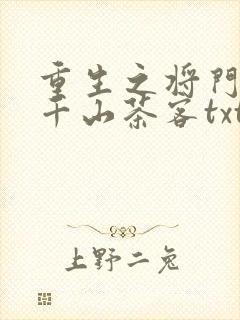 重生之将门
千山茶客txt
上野二兔